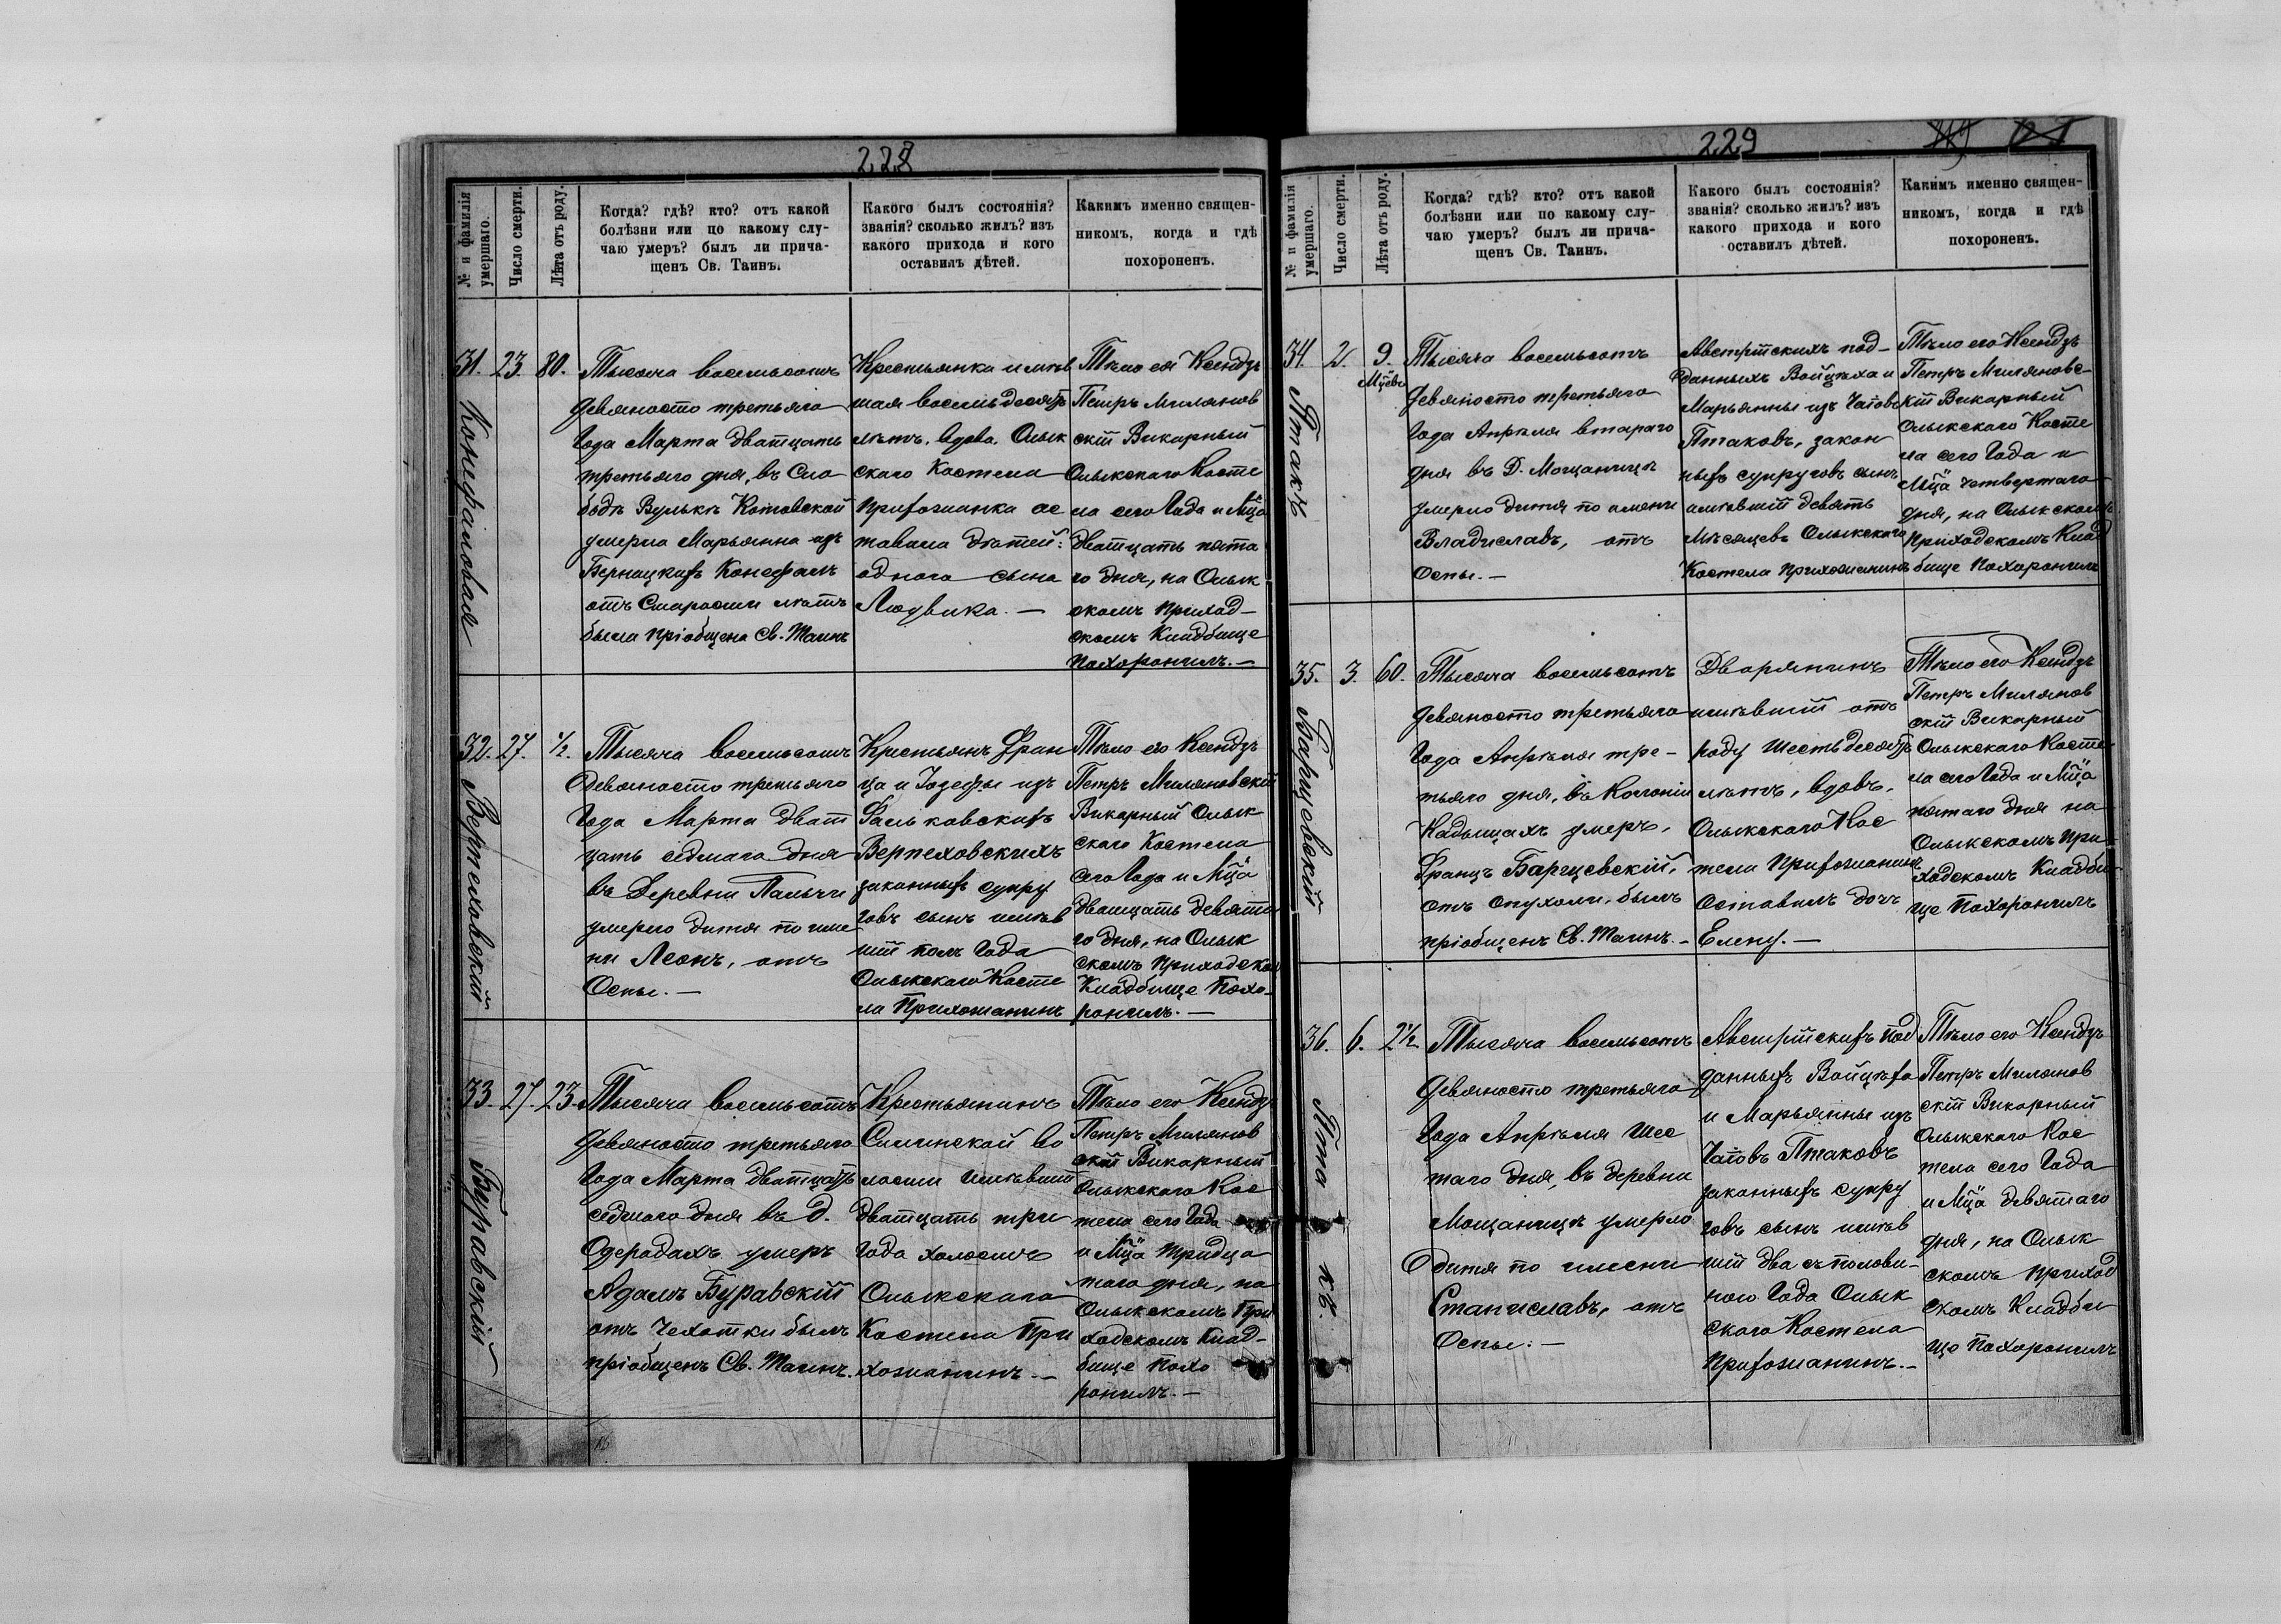 228
№ и фамилія умершаго.
Число смерти.
Лѣта отъ роду.
Когда? гдѣ? кто? отъ какой
болѣзни или по какому слу-
чаю умеръ? былъ ли прича-
щенъ Св. Таинъ.
Какого былъ состоянія?
званія? сколько жилъ? изъ
какого прихода и кого
оставилъ дѣтей.
Какимъ именно священ-
никомъ, когда и гдѣ
похороненъ.
31.
Конефаловая
23.
80.
Тысяча восемьсотъ
девяносто третьяго
Года Марта дватцать
третьяго дня, въ Сло
бодѣ Вулькѣ Котовской
умерла Марьянна изъ
Бернацкихъ Конефалъ
отъ Старости лѣтъ
была пріобщена Св. Таинъ
Крестьянка имѣв
шая восемьдесятъ
лѣтъ, вдова, Олык
скаго Костела
Прихожанка ос
тавила дѣтей:
одного сына
Людвика. —
Тѣло ея Ксендзъ
Петръ Миляное
скій Викарный
Олыкскаго Косте
ла сего Года и Мца
двадцать пята
го дня, на Олык
скомъ приход-
скомъ Кладбище
похоронилъ. —
32.
Верпеховскій
27.
½.
Тысяча восемьсотъ
девяносто третьяго
Года Марта дват
цать седмаго дня
въ Деревни Пальчи
умерло дитя по име
ни Леонъ, отъ
Оспы. —
Крестьянъ Фран
ца и Іозефы изъ
Гальковскихъ
Верпеховскихъ
законныхъ супру
говъ сынъ имѣв
шій полъ Года
Олыкскаго Косте
ла Прихожанинъ
Тѣло его Ксендзъ
Петръ Миляновскій
Викарный Олык
скаго Костела
сего Года и Мца
двадцать девята
го дня, на Олык
скомъ приходском
Кладбище Похо-
ронилъ. —
33.
Буравскій
27.
23.
Тысяча восемьсотъ
девяносто третьяго
Года Марта двадцать
седмаго дня въ д.
Одерадахъ умеръ
Адамъ Буравскій
отъ Чехотки былъ
пріобщенъ Св. Таинъ.
Крестьянинъ
Силинской во
лости имѣвшій
двадцать три
Года холостъ
Олыкскаго
Костела При
хожанинъ. —
Тѣло его Ксендзъ
Петръ Милянов
скій Викарный
Олыкскаго Кос
тела сего Года
и Мца тридца
таго дня, на
Олыкскомъ При
ходскомъ Клад-
бище похо
ронилъ. —
229
№ и фамилія умершаго.
Число смерти.
Лѣта отъ роду.
Когда? гдѣ? кто? отъ какой
болѣзни или по какому слу-
чаю умеръ? былъ ли прича-
щенъ Св. Таинъ.
Какого былъ состоянія?
званія? сколько жилъ? изъ
какого прихода и кого
оставилъ дѣтей.
Какимъ именно священ-
никомъ, когда и гдѣ
похороненъ.
34.
Птакъ
2.
9.
Мцевъ
Тысяча восемьсотъ
девяносто третьяго
Года Апрѣля втараго
дня въ Д. Мощаницѣ
умерло дитя по имени
Владиславъ, отъ
Оспы. —
Австрійскихъ под-
данныхъ Войцѣха и
Марьянны изъ Чатовъ
Птаковъ, закон
ныхъ супруговъ сынъ
имѣвшій девять
мѣсяцевъ Олыкскаго
Костела Прихожанинъ
Тѣло его Ксендзъ
Петръ Миляновс-
кій Викарный
Олыкскаго Косте
ла сего Года и
Мца четвертаго
дня, на Олыкскомъ
приходскомъ Клад
бище Похоронилъ
35.
Барщевскій
3.
60.
Тысяча восемьсотъ
девяносто третьяго
Года Апрѣля тре-
тьяго дня, въ Колоніи
Кадыщахъ умеръ,
Францъ Барщевскій,
отъ опухоли, былъ
пріобщенъ Св. Таинъ. —
Дворянинъ
имѣвшій отъ
роду шестьдесятъ
лѣтъ, вдовъ,
Олыкскаго Кос
тела Прихожанинъ
Оставилъ дочь
Елену. —
Тѣло его Ксендзъ
Петръ Милянов
скій Викарный
Олыкскаго Косте
ла сего Года и Мца
пятаго дня на
Олыкскомъ при-
ходскомъ Кладби-
ще Похоронилъ
36.
Птакъ.
6.
2½
Тысяча восемьсотъ
девяносто третьяго
Года Апрѣля шес
таго дня, въ деревни
Мощаницѣ умерло
дитя по имени
Станиславъ, отъ
Оспы. —
Австрійскихъ под
данныхъ Войцѣха
и Марьянны изъ
Чатовъ Птаковъ
законныхъ супру
говъ сынъ имѣв
шій два съ полови-
ною Года Олык
скаго Костела
Прихожанинъ. —
Тѣло его Ксендзъ
Петръ Милянов
скій Викарный
Олыкскаго Кос
тела сего Года
и Мца девятаго
дня, на Олык
скомъ приход
скомъ Кладби
ще похоронилъ